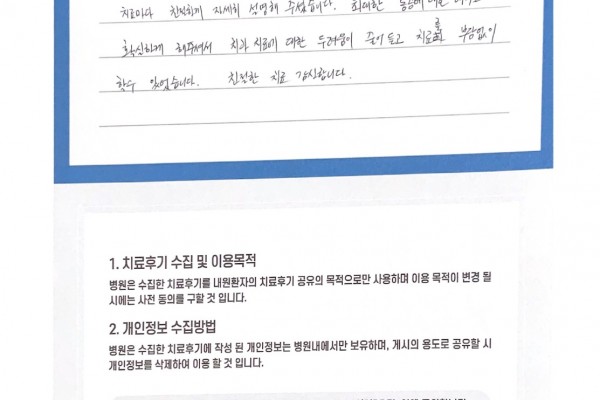 치료마다 친절하게 자세히 설명해 주셨습니다. 최대한
확실하게 해주셔서 치과 치료에 대한 두려움이 줄어들고 치료를 부담없이
할수 있었습니다. 친절한 치료 감사합니다.
1. 치료후기 수집 및 이용목적
병원은 수집한 치료후기를 내원환자의 치료후기 공유의 목적으로만 사용하며 이용 목적이 변경 될
시에는 사전 동의를 구할 것 입니다.
2. 개인정보 수집방법
병원은 수집한 치료후기에 작성 된 개인정보는 병원내에서만 보유하며, 게시의 용도로 공유할 시
개인정보를 삭제하여 이용 할 것 입니다.